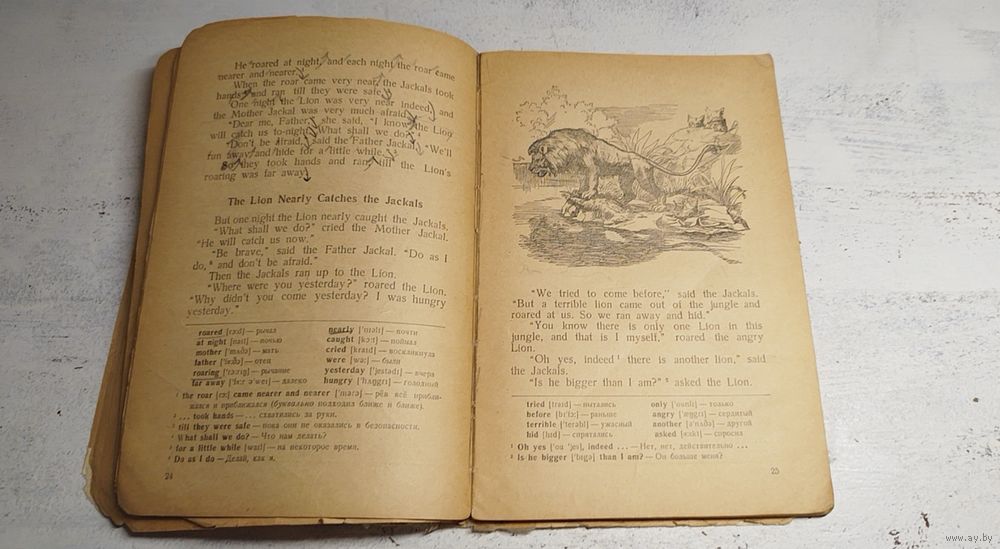 He roared at night, and each night the roar came
nearer and nearer.
When the roar came very near, the Jackals took
hands and ran till they were safe.
One night the Lion was very near indeed, and
the Mother Jackal was very much afraid.
"Dear me, Father," she said, "I know the Lion
will catch us to-night. What shall we do?" ⁴
"Don't be afraid," said the Father Jackal, "We'll
run away and hide for a little while." ⁵
So they took hands and ran till the Lion's
roaring was far away.
The Lion Nearly Catches the Jackals
But one night the Lion nearly caught the Jackals.
"What shall we do?" cried the Mother Jackal.
"He will catch us now."
"Be brave," said the Father Jackal. "Do as I
do, ⁶ and don't be afraid."
Then the Jackals ran up to the Lion.
"Where were you yesterday?" roared the Lion.
"Why didn't you come yesterday? I was hungry
yesterday."
roared [rɔ:d] — рычал
at night [naɪt] — ночью
mother ['mʌðə] — мать
father ['fɑ:ðə] — отец
roaring ['rɔ:rɪŋ] — рычание
far away ['fɑ:r ə'weɪ] — далеко
nearly ['nɪəlɪ] — почти
caught [kɔ:t] — поймал
cried [kraɪd] — воскликнула
were [wə:] — были
yesterday ['jestədɪ] — вчера
hungry ['hʌŋgrɪ] — голодный
¹ the roar [rɔ:] came nearer and nearer ['nɪərə] — рёв всё прибли-
жался и приближался (буквально подходил ближе и ближе).
² ... took hands — ... схватились за руки.
³ till they were safe — пока они не оказались в безопасности.
⁴ What shall we do? — Что нам делать?
⁵ for a little while [waɪl] — на некоторое время.
⁶ Do as I do — Делай, как я.
24
"We tried to come before," said the Jackals.
"But a terrible lion came out of the jungle and
roared at us. So we ran away and hid."
"You know there is only one Lion in this
jungle, and that is I myself," roared the angry
Lion.
"Oh yes, indeed ¹ there is another lion," said
the Jackals.
"Is he bigger than I am?" ² asked the Lion.
tried [traɪd] — пытались
before [bɪ'fɔ:] — раньше
terrible ['terəbl] — ужасный
hid [hɪd] — спрятались
only ['ounlɪ] — только
angry ['æŋgrɪ] — сердитый
another [ə'nʌðə] — другой
asked [ɑ:skt] — спросил
¹ Oh yes ['ou 'jes], indeed ... — Нет, нет, действительно ...
² Is he bigger ['bɪgə] than I am? — Он больше меня?
25
www.ay.by